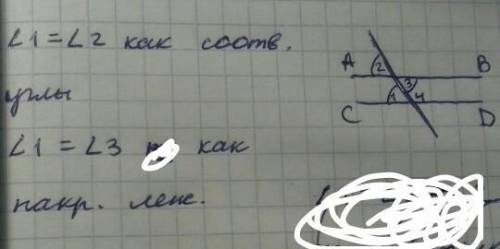 ∠1 = ∠2 как соотв.
углы
∠1 = ∠3 как
накр. леж.
A B
2
3
1 4
C D